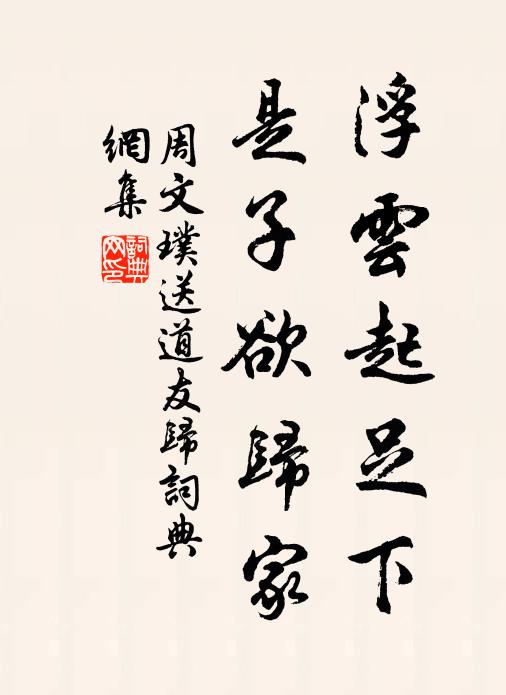 浮雲起足下
是子欲歸家
周文璞送道友歸詞典
網集
詞典網印